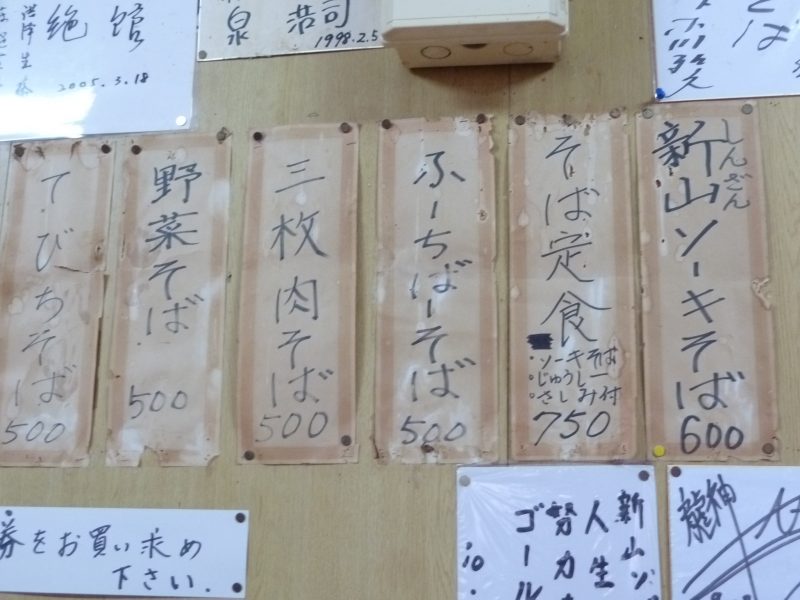 絶館
2005.3.18
泉浩司
1998.2.5
新山ソーキそば
しんざん
600
そば定食
・ソーキそば
・じゅうしー
・さしみ付
750
ふーちばーそば
500
三枚肉そば
500
野菜そば
500
てびちそば
500
券をお買い求め
下さい.
新山ソ
人生
努力
ゴール
龍神